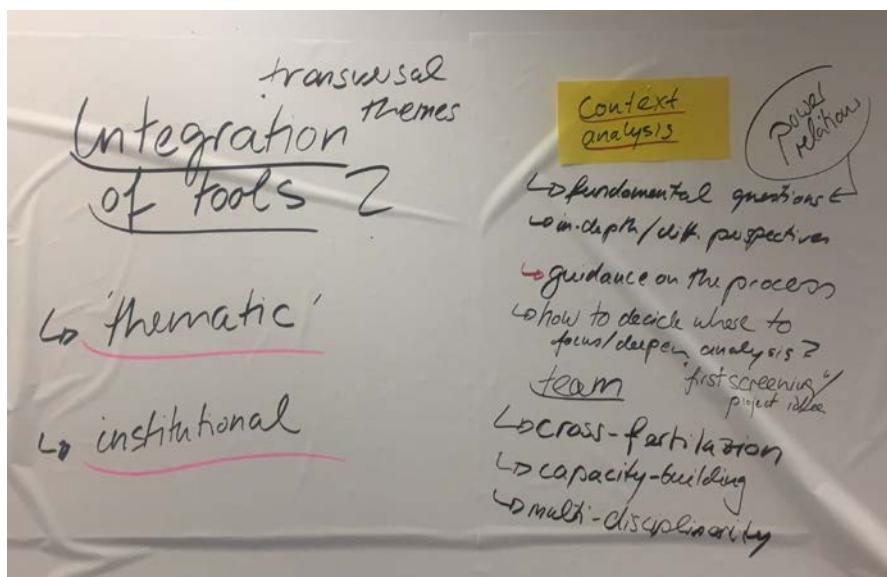 transversal
themes
Integration
of tools?
↳ 'thematic'
↳ institutional
Context
analysis
power
relations
↳ fundamental questions
↳ in-depth/diff. perspectives
↳ guidance on the process
↳ how to decide where to
focus/deepen analysis?
"first screening"/
project idea
team
↳ cross-fertilazion
↳ capacity-building
↳ multi-disciplinarity